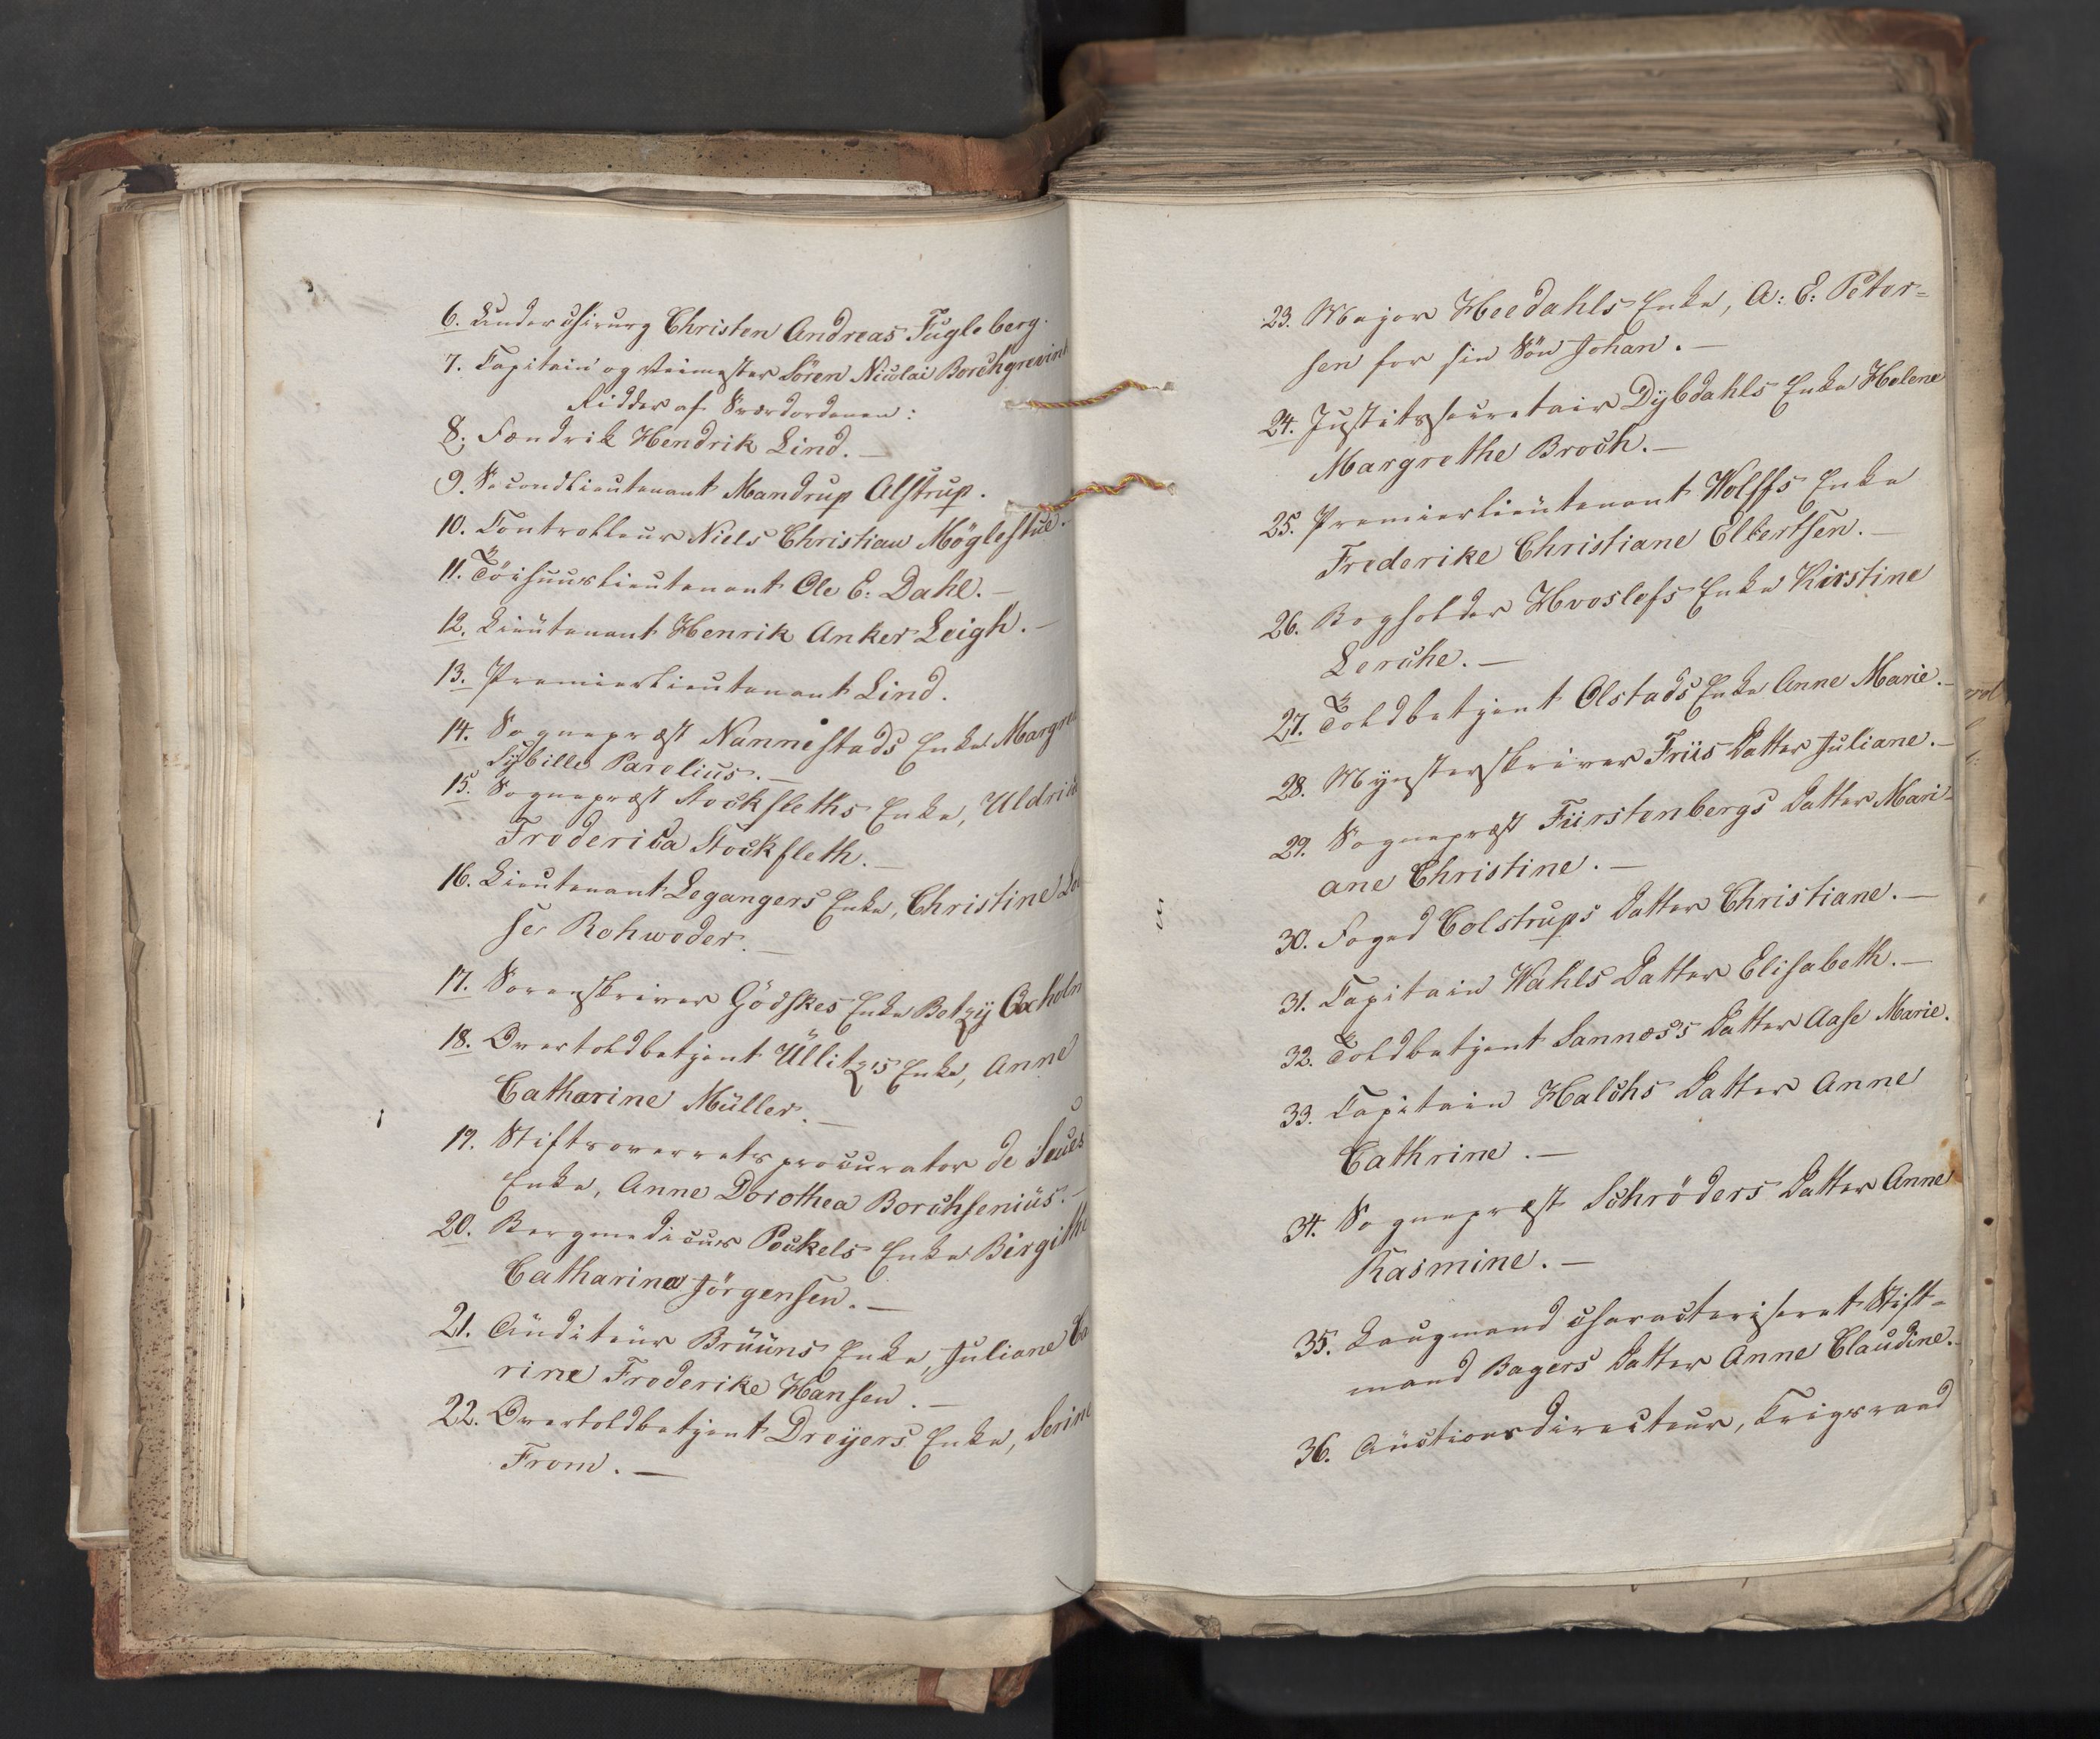 6. Underchirurg Christen Andreas Fugleberg.
7. Capitain og Veimester Sören Nicolai Borchgrevink
Ridder af Sværdordenen:
8. Fændrik Hendrik Lind. —
9. SecondLieutenant Mandrup Alstrup.
10. Controlleur Niels Christian Möglestue.
11. Töihuuslieutenant Ole E: Dahl. —
12. Lieutenant Henrik Anker Leigh. —
13. Premierlieutenant Lind.
14. Sognepræst Nannestads Enke Margre
Sybille Parelius. —
15. Sognepræst Stockfleths Enke, Uldrik
Frederica Stockfleth. —
16. Lieutenant Legangers Enke, Christine Lou
se Rohweder. —
17. Sorenskriver Gödskes Enke Betzy Oxholm
18. Overtoldbetjent Üllitz's Enke, Anne
Catharine Müller. —
19. Stiftsoverretsprocurator de
Enke, Anne Dorothea Borchsenius. —
20. Bergmedicus Pockels Enke Birgithe
Catharina Jörgensen. —
21. Auditeur Bruuns Enke, Juliane Ca
rine Frederike Hansen. —
22. Overtoldbetjent Dreyers Enke, Serine
From. —
23. Major Heedahls Enke, A: E: Peter=
sen for sin Sön Johan. —
24. Justitssecretair Dybdahls Enke Helene
Margrethe Broch. —
25. Premierlieutenant Wolffs Enke
Frederike Christiane Elbertsen. —
26. Bogholder Hvoslefs Enke Kirstine
Lerche. —
27. Toldbetjent Olstads Enke Anne Marie. —
28. Mynsterskriver Friis Datter Juliane. —
29. Sognepræst Fürstenbergs Datter Mari-
ane Christine. —
30. Foged Colstrups Datter Christiane. —
31. Capitain Wahls Datter Elisabeth. —
32. Toldbetjent Sannæs's Datter Aase Marie.
33. Capitain Halchs Datter Anne
Cathrine. —
34. Sognepræst Schröders Datter Anne
Rasmine. —
35. Laugmand characteriseret Stift=
mand Bagers Datter Anne Claudine.
36. Auctionsdirecteur, Krigsraad